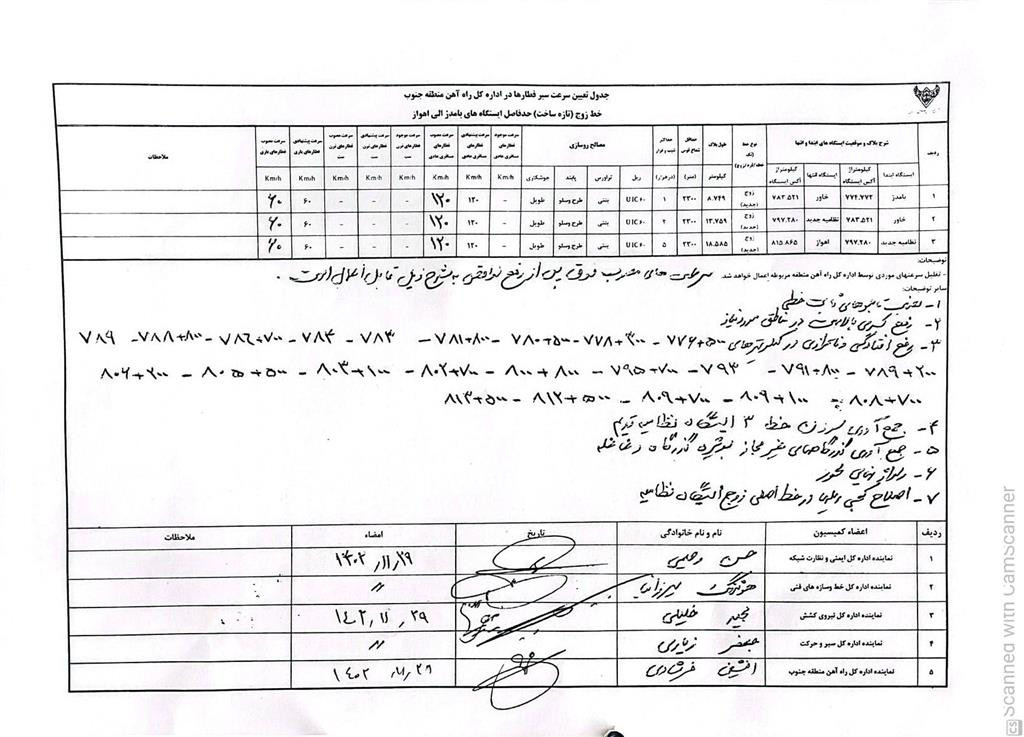 جدول تعیین سرعت سیر قطارها در اداره کل راه آهن منطقه جنوب
خط زوج (تازه ساخت) حدفاصل ایستگاه های بامدژ الی اهواز
ردیف شرح بلاک و موقعیت ایستگاه های ابتدا و انتها نوع خط طول بلاک حداقل شعاع قوس حداکثر شیب و فراز مصالح روسازی سرعت موجود قطارهای مسافری عادی سرعت پیشنهادی قطارهای مسافری عادی سرعت مصوب قطارهای مسافری عادی سرعت موجود قطارهای ترن ست سرعت پیشنهادی قطارهای ترن ست سرعت مصوب قطارهای ترن ست سرعت پیشنهادی قطارهای باری سرعت مصوب قطارهای باری ملاحظات
ایستگاه ابتدا کیلومتراژ آکس ایستگاه ایستگاه انتها کیلومتراژ آکس ایستگاه کیلومتر (متر) (درهزار) ریل تراورس پابند جوشکاری Km/h Km/h Km/h Km/h Km/h Km/h Km/h Km/h
۱ بامدژ ۷۷۴.۷۷۲ خاور ۷۸۳.۵۲۱ زوج (جدید) ۸.۷۴۹ ۲۳۰۰ ۱ UIC۶۰ بتنی طرح وسلو طویل - ۱۲۰ ۱۲۰ - - - ۶۰ ۶۰
۲ خاور ۷۸۳.۵۲۱ نظامیه جدید ۷۹۷.۲۸۰ زوج (جدید) ۱۳.۷۵۹ ۲۳۰۰ ۲ UIC۶۰ بتنی طرح وسلو طویل - ۱۲۰ ۱۲۰ - - - ۶۰ ۶۰
۳ نظامیه جدید ۷۹۷.۲۸۰ اهواز ۸۱۵.۸۶۵ زوج (جدید) ۱۸.۵۸۵ ۲۳۰۰ ۵ UIC۶۰ بتنی طرح وسلو طویل - ۱۲۰ ۱۲۰ - - - ۶۰ ۶۰
توضیحات:
- تقلیل سرعتهای موردی توسط اداره کل راه آهن منطقه مربوطه اعمال خواهد شد.
سرعت های مصوب فوق پس از رفع نواقص به شرح ذیل قابل اعمال است.
سایر توضیحات:
۱- تابلوهای خطی
۲- رفع کسری بالاست در مناطق مورد نیاز
۳- رفع افتادگی و ناترازی در کیلومترهای ۷۷۶+۵۰۰ - ۷۷۸+۳۰۰ - ۷۸۰+۵۰۰ - ۷۸۱+۸۰۰ - ۷۸۳ - ۷۸۴ - ۷۸۶+۷۰۰ - ۷۸۸+۸۰۰ - ۷۸۹
۷۸۹+۲۰۰ - ۷۹۱+۸۰۰ - ۷۹۳ - ۷۹۵+۷۰۰ - ۸۰۰+۸۰۰ - ۸۰۲+۷۰۰ - ۸۰۳+۱۰۰ - ۸۰۵+۵۰۰ - ۸۰۶+۲۰۰
۸۰۸+۷۰۰ - ۸۰۹+۱۰۰ - ۸۰۹+۷۰۰ - ۸۱۲+۵۰۰ - ۸۱۳+۵۰۰
۴- جمع آوری سوزن خط ۳ ایستگاه نظامیه قدیم
۵- جمع آوری گذرگاههای غیر مجاز گذرگاه
۶- محور
۷- اصلاح در خط اصلی زوج ایستگاه نظامیه
ردیف اعضاء کمیسیون نام و نام خانوادگی تاریخ امضاء ملاحظات
۱ نماینده اداره کل ایمنی و نظارت شبکه حسن رحیمی ۱۴۰۲/۱۱/۲۹
۲ نماینده اداره کل خط وسازه های فنی هوشنگ میرزانیا "
۳ نماینده اداره کل نیروی کشش مجید خلیلی ۱۴۰۲/۱۱/۲۹
۴ نماینده اداره کل سیر و حرکت جعفر زیاری "
۵ نماینده اداره کل راه آهن منطقه جنوب افشین فرشادی ۱۴۰۲/۱۱/۲۹
CS Scanned with CamScanner